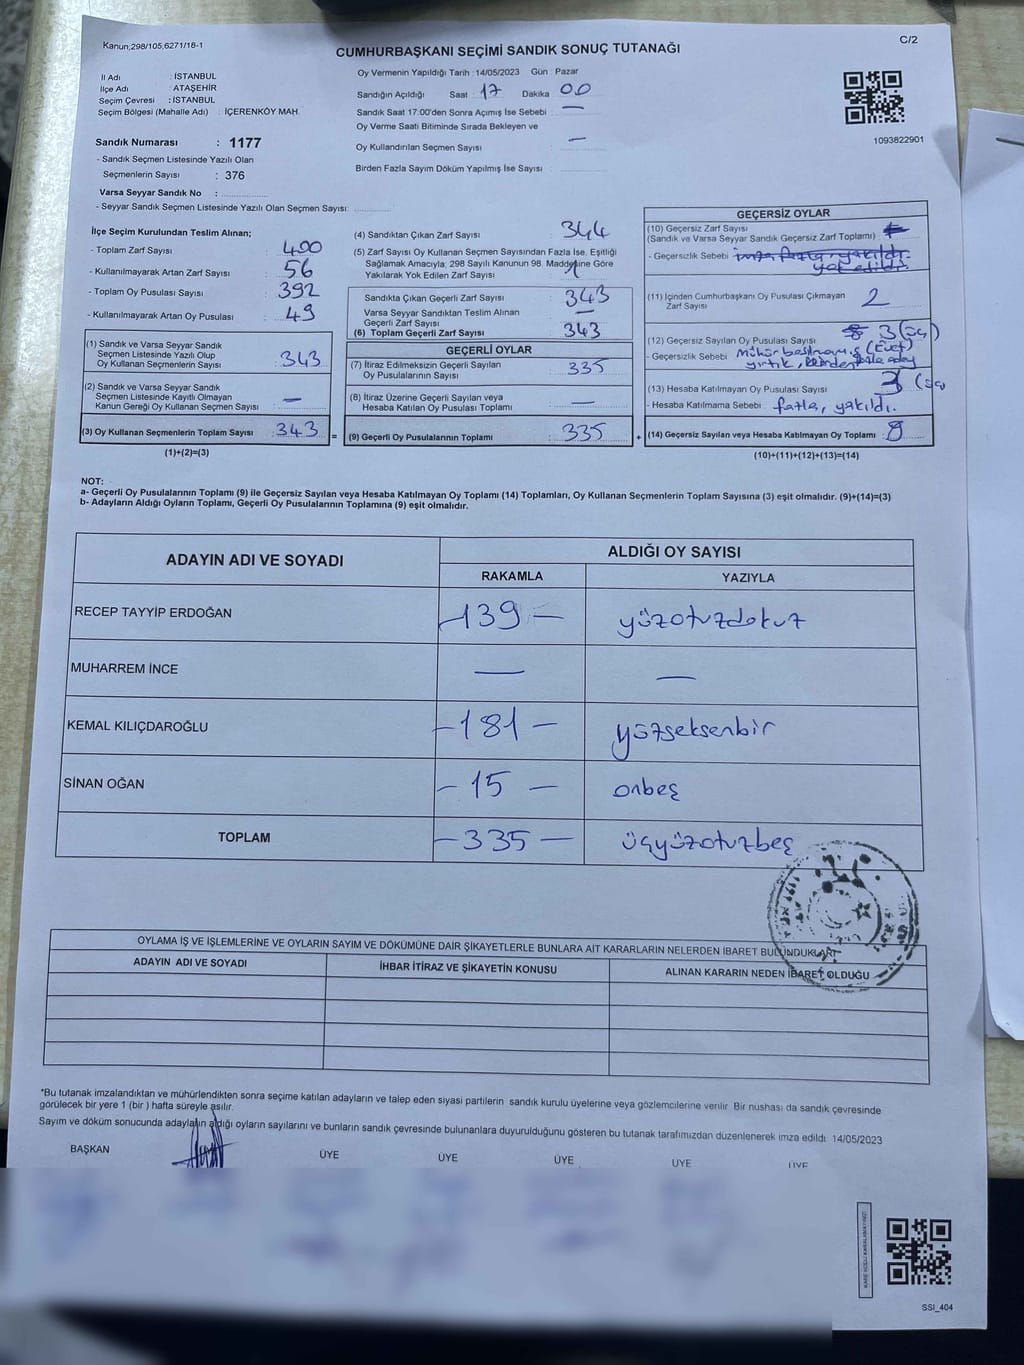 Kanun,298/105,6271/18-1
CUMHURBAŞKANI SEÇİMİ SANDIK SONUÇ TUTANAĞI
C/2
İl Adı : İSTANBUL
İlçe Adı : ATAŞEHİR
Seçim Çevresi : İSTANBUL
Seçim Bölgesi (Mahalle Adı) : İÇERENKÖY MAH.
Sandık Numarası : 1177
- Sandık Seçmen Listesinde Yazılı Olan
Seçmenlerin Sayısı : 376
Varsa Seyyar Sandık No :
- Seyyar Sandık Seçmen Listesinde Yazılı Olan Seçmen Sayısı:
Oy Vermenin Yapıldığı Tarih : 14/05/2023 Gün : Pazar
Sandığın Açıldığı Saat : 17 Dakika : 00
Sandık Saat 17:00'den Sonra Açımış İse Sebebi : —
Oy Verme Saati Bitiminde Sırada Bekleyen ve
Oy Kullandırılan Seçmen Sayısı : —
Birden Fazla Sayım Döküm Yapılmış İse Sayısı :
1093822901
İlçe Seçim Kurulundan Teslim Alınan;
- Toplam Zarf Sayısı : 400
- Kullanılmayarak Artan Zarf Sayısı : 56
- Toplam Oy Pusulası Sayısı : 392
- Kullanılmayarak Artan Oy Pusulası : 49
(1) Sandık ve Varsa Seyyar Sandık
Seçmen Listesinde Yazılı Olup
Oy Kullanan Seçmenlerin Sayısı : 343
(2) Sandık ve Varsa Seyyar Sandık
Seçmen Listesinde Kayıtlı Olmayan
Kanun Gereği Oy Kullanan Seçmen Sayısı : —
(3) Oy Kullanan Seçmenlerin Toplam Sayısı : 343
(1)+(2)=(3)
(4) Sandıktan Çıkan Zarf Sayısı : 344
(5) Zarf Sayısı Oy Kullanan Seçmen Sayısından Fazla İse, Eşitliği
Sağlamak Amacıyla; 298 Sayılı Kanunun 98. Maddesine Göre
Yakılarak Yok Edilen Zarf Sayısı : 1
Sandıkta Çıkan Geçerli Zarf Sayısı : 343
Varsa Seyyar Sandıktan Teslim Alınan
Geçerli Zarf Sayısı : —
(6) Toplam Geçerli Zarf Sayısı : 343
GEÇERLİ OYLAR
(7) İtiraz Edilmeksizin Geçerli Sayılan
Oy Pusulalarının Sayısı : 335
(8) İtiraz Üzerine Geçerli Sayılan veya
Hesaba Katılan Oy Pusulası Toplamı : —
= (9) Geçerli Oy Pusulalarının Toplamı : 335 +
GEÇERSİZ OYLAR
(10) Geçersiz Zarf Sayısı
(Sandık ve Varsa Seyyar Sandık Geçersiz Zarf Toplamı) :
- Geçersizlik Sebebi : imza fazla, yakıldı.
yok edildi.
(11) İçinden Cumhurbaşkanı Oy Pusulası Çıkmayan
Zarf Sayısı : 2
(12) Geçersiz Sayılan Oy Pusulası Sayısı : 3 (üç)
- Geçersizlik Sebebi : Mühür basılmamış (Evet)
yırtık,
(13) Hesaba Katılmayan Oy Pusulası Sayısı : 3 (üç
- Hesaba Katılmama Sebebi : fazla, yakıldı.
(14) Geçersiz Sayılan veya Hesaba Katılmayan Oy Toplamı : 8
(10)+(11)+(12)+(13)=(14)
NOT:
a- Geçerli Oy Pusulalarının Toplamı (9) ile Geçersiz Sayılan veya Hesaba Katılmayan Oy Toplamı (14) Toplamları, Oy Kullanan Seçmenlerin Toplam Sayısına (3) eşit olmalıdır. (9)+(14)=(3)
b- Adayların Aldığı Oyların Toplamı, Geçerli Oy Pusulalarının Toplamına (9) eşit olmalıdır.
ADAYIN ADI VE SOYADI ALDIĞI OY SAYISI
RAKAMLA YAZIYLA
RECEP TAYYİP ERDOĞAN -139- yüzotuzdokuz
MUHARREM İNCE — —
KEMAL KILIÇDAROĞLU -181- yüzseksenbir
SİNAN OĞAN -15- onbeş
TOPLAM -335- üçyüzotuzbeş
OYLAMA İŞ VE İŞLEMLERİNE VE OYLARIN SAYIM VE DÖKÜMÜNE DAİR ŞİKAYETLERLE BUNLARA AİT KARARLARIN NELERDEN İBARET BULUNDUKLARI
ADAYIN ADI VE SOYADI İHBAR İTİRAZ VE ŞİKAYETİN KONUSU ALINAN KARARIN NEDEN İBARET OLDUĞU
*Bu tutanak imzalandıktan ve mühürlendikten sonra seçime katılan adayların ve talep eden siyasi partilerin sandık kurulu üyelerine veya gözlemcilerine verilir. Bir nushası da sandık çevresinde
görülecek bir yere 1 (bir ) hafta süreyle asılır.
Sayım ve döküm sonucunda adayların aldığı oyların sayılarını ve bunların sandık çevresinde bulunanlara duyurulduğunu gösteren bu tutanak tarafımızdan düzenlenerek imza edildi. 14/05/2023
BAŞKAN ÜYE ÜYE ÜYE ÜYE ÜYE
KARE KODU KARALAMAYINIZ!
SSI_404